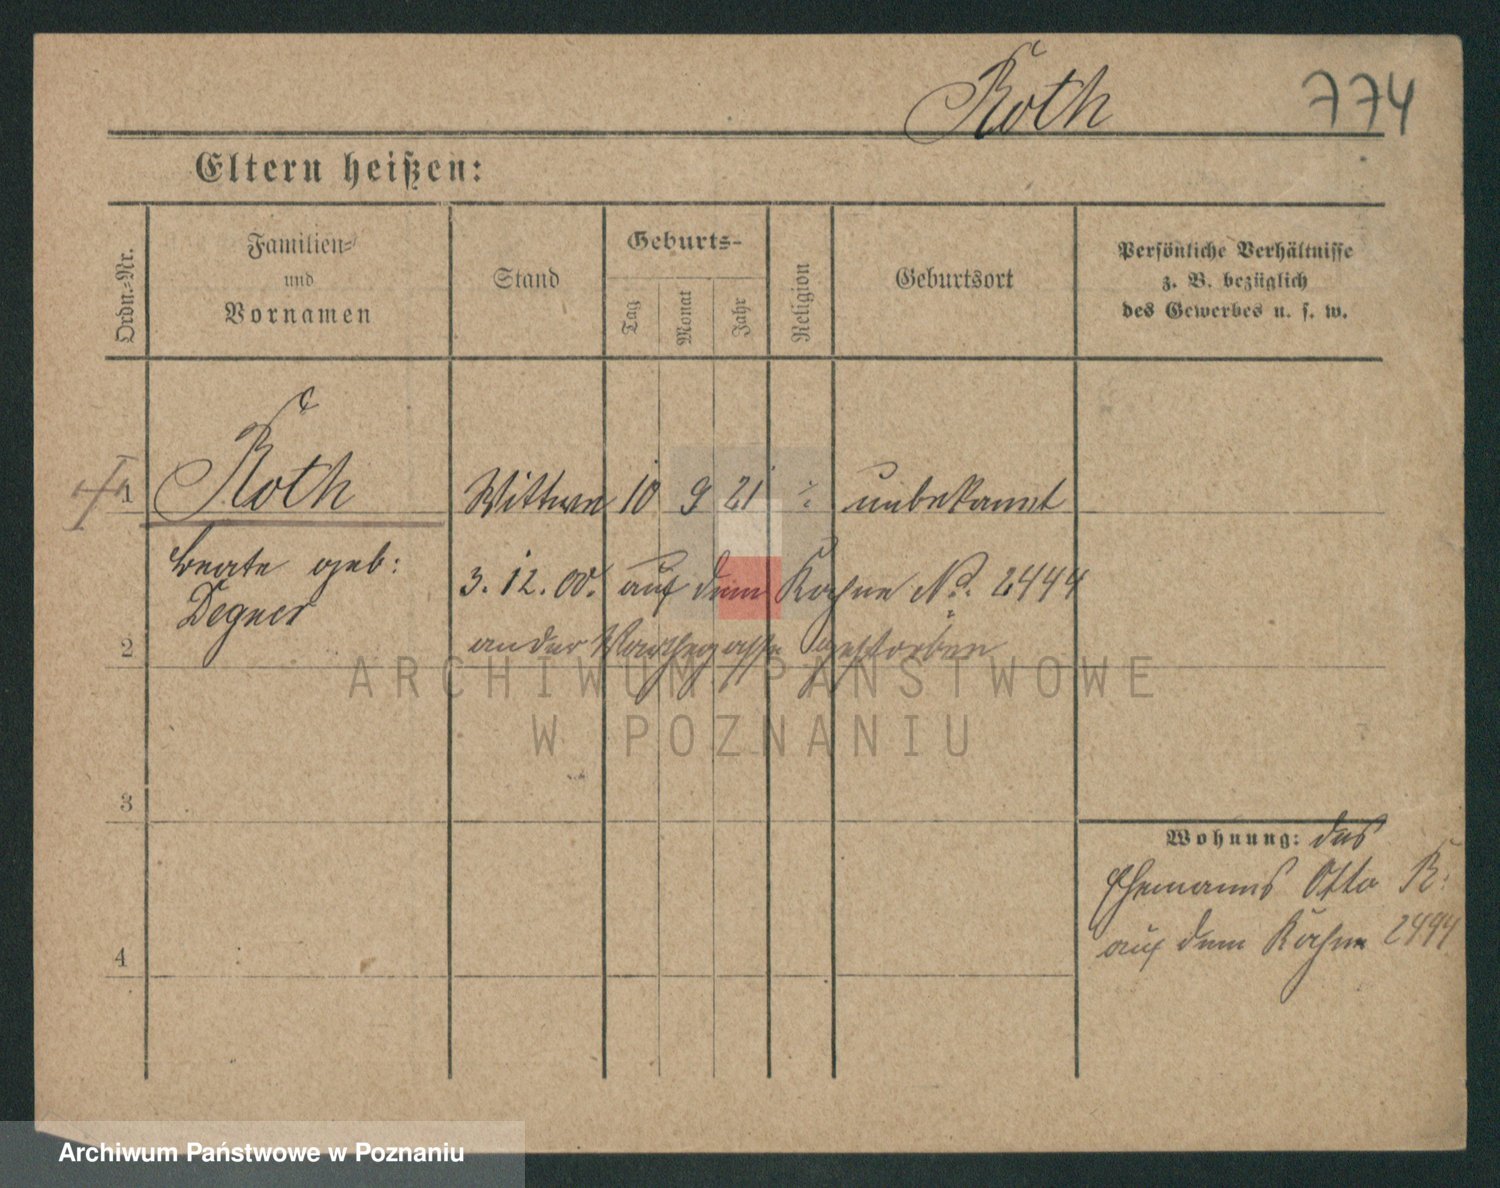 Roth 774
Eltern heißen:
Ordn.=Nr.
Familien=
und
Vornamen
Stand
Geburts-
Tag
Monat
Jahr
Religion
Geburtsort
Persönliche Verhältnisse
z. B. bezüglich
des Gewerbes u. s. w.
1 Roth Wittwe 10 9 21 ÷ unbekannt
Beate geb:
Degner
3. 12. 00. auf dem Kahne No. 2444
2 an der Warthegasse gestorben
ARCHIWUM PAŃSTWOWE
W POZNANIU
3
Wohnung: des
Ehemanns Otto R:
auf dem Kahne 2494
4
Archiwum Państwowe w Poznaniu